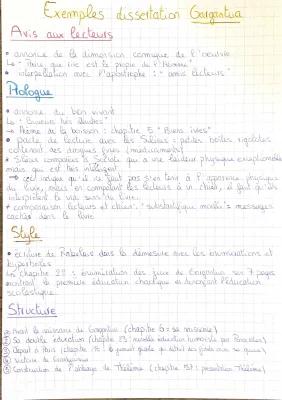 Exemples dissertation Gargantua
Avis aux lecteurs
• annonce de la dimension comique de l'oeuvre
↳ "Mieux que rire est le propre de l'homme"
• interpellation avec l'apostrophe : "amis lecteurs"
Prologue
• annonce du bon vivant
↳ "Buveurs très illustres"
↳ thème de la boisson : chapitre 5 "Biens ivres"
• pacte de lecture avec les Silènes = petites boîtes rigolotes
contenant des drogues fines (médicaments)
• Silènes comparées à Socrate qui a une laideur physique
mais qui est très intelligent
→ indique qu'il ne faut pas s'en tenir à l'apparence physique
du livre, mais en comparant les lecteurs à un chien, il faut qu'ils
interprètent le vrai sens du livre.
+ comparaison lecteurs et chien : "substantifique moelle" = messages
cachés dans le livre
Style
• écriture de Rabelais dans la démesure avec les énumérations et
hyperboles
↳ chapitre 22 : énumération des jeux de Gargantua sur 7 pages
montrant la première éducation chaotique et dénonçant l'éducation
scolastique.
Structure
Avant la naissance de Gargantua (chapitre 6 = sa naissance)
Sa double éducation (chapitre 23 : nouvelle éducation humaniste par Ponocrates)
Départ à Paris (chapitre 16 : la jument géante qui détruit des forêts avec sa queue)
Victoire de Grandgousier
Construction de l'abbaye de Thélème (chapitre 57 : présentation Thélème)